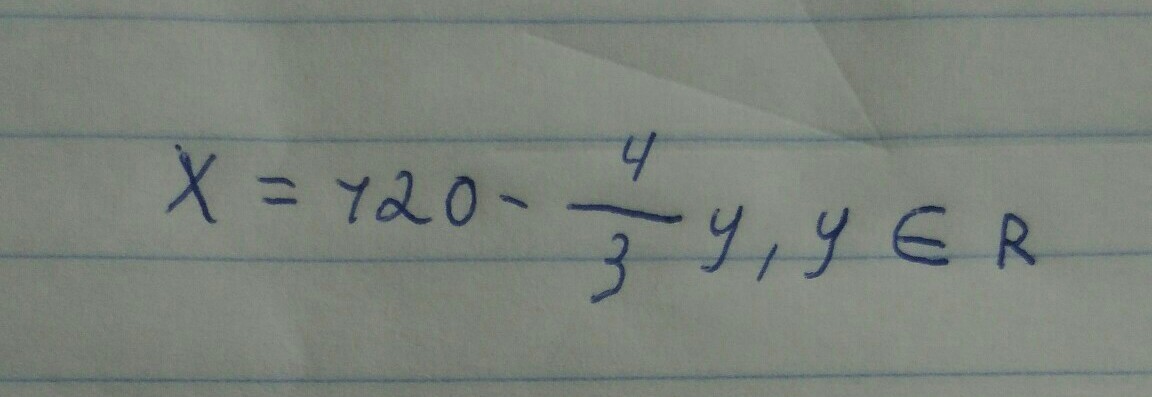 X = 120 - 4/3 y, y ∈ R